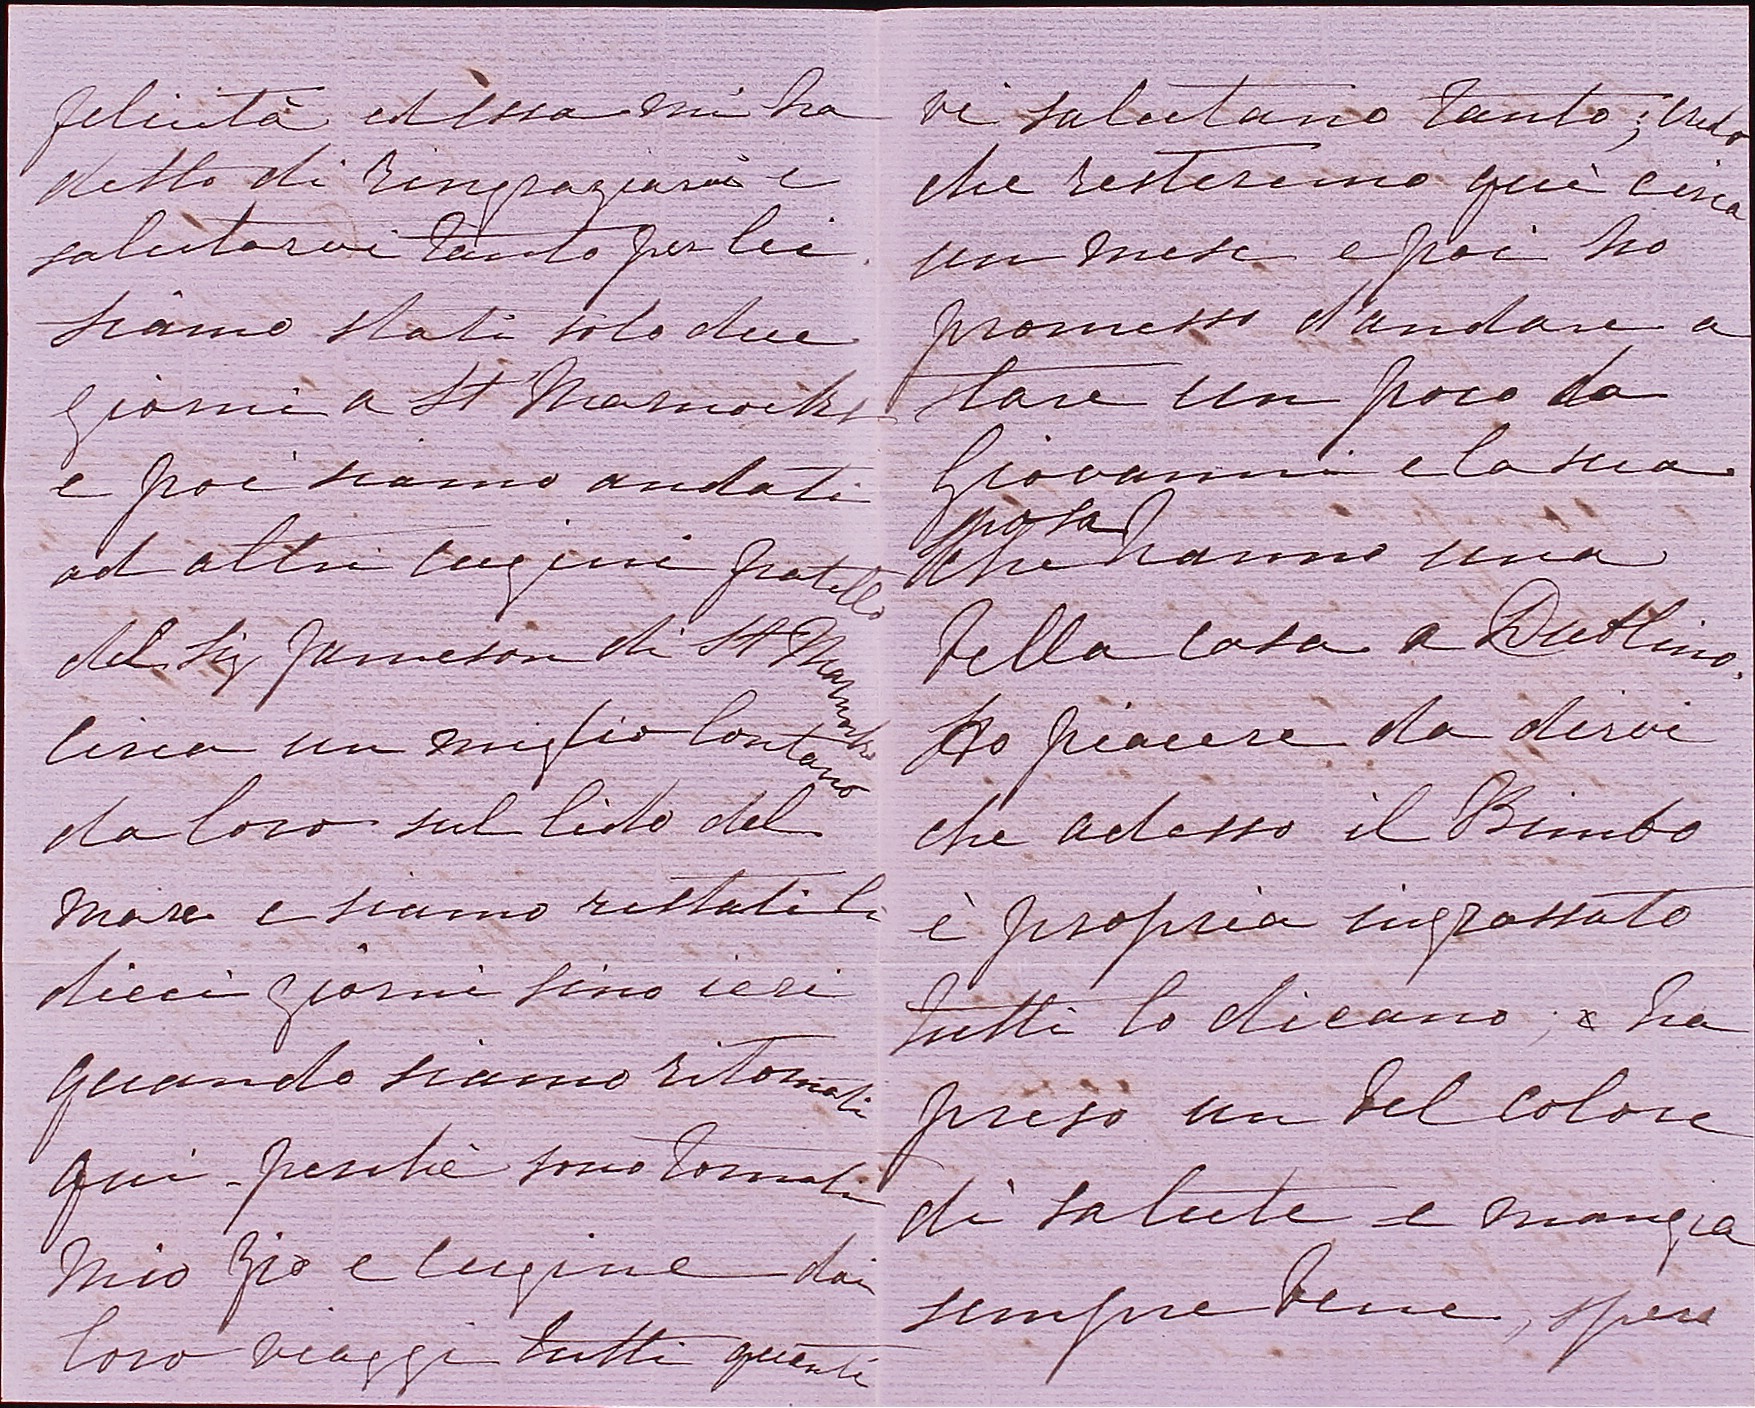 felicità ed essa mi ha
detto di ringraziarvi e
salutarvi tanto per lei.
siamo stati solo due
giorni a St Marnocks
e poi siamo andati
ad altri cugini fratello
del Sig Jameson di St Marnocks
circa un miglio lontano
da loro sul lido del
mare e siamo restati lì
dieci giorni sino ieri
quando siamo ritornati
qui - perchè sono tornati
mio zio e cugine dai
loro viaggi tutti quanti
vi salutano tanto; credo
che resteremo quì circa
un mese e poi ho
promesso d'andare a
stare un poco da
Giovanni e la sua
sposa
che hanno una
bella casa a Dublino.
Ho piacere da dirvi
che adesso il Bimbo
è propria ingrassato
tutti lo dicano, e ha
preso un bel colore
di salute e mangia
sempre bene, spero